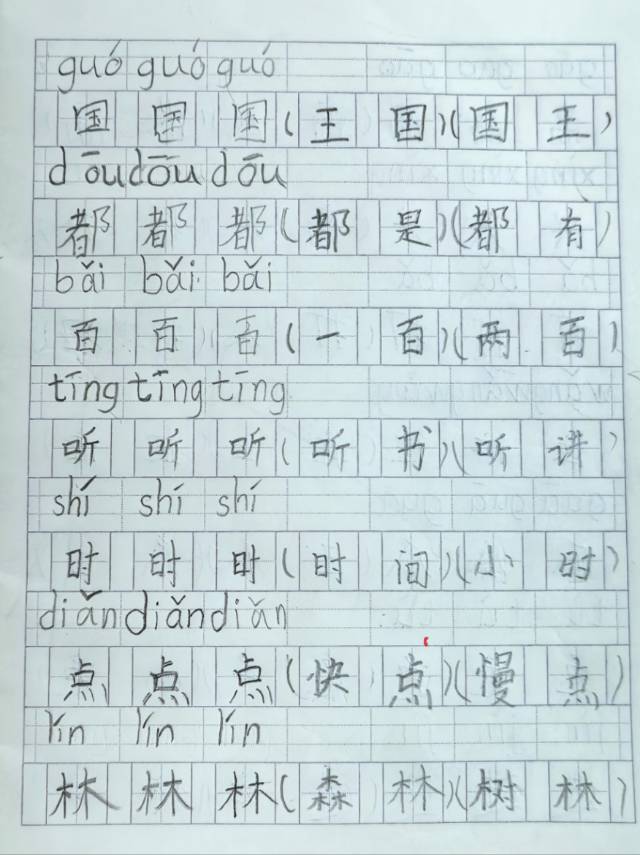 guó guó guó
国 国 国 ( 王 国 )( 国 王 )
dōu dōu dōu
都 都 都 ( 都 是 )( 都 有 )
bǎi bǎi bǎi
百 百 百 ( 一 百 )( 两 百 )
tīng tīng tīng
听 听 听 ( 听 书 )( 听 讲 )
shí shí shí
时 时 时 ( 时 间 )( 小 时 )
diǎn diǎn diǎn
点 点 点 ( 快 点 )( 慢 点 )
lín lín lín
林 林 林 ( 森 林 )( 树 林 )